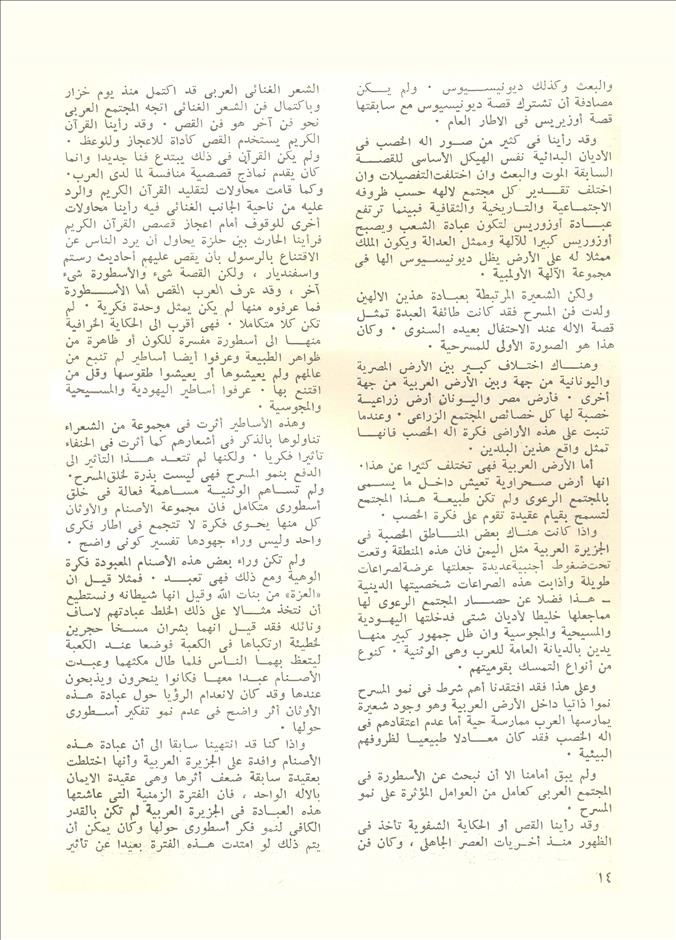 والبعث وكذلك ديونيسيوس . ولم يكن
مصادفة أن تشترك قصة ديونيسيوس مع سابقتها
قصة أوزيريس فى الاطار العام .
وقد رأينا فى كثير من صور اله الخصب فى
الأديان البدائية نفس الهيكل الأساسى للقصة
السابقة الموت والبعث وان اختلفت التفصيلات وان
اختلف تقدير كل مجتمع لالهه حسب ظروفه
الاجتماعية والتاريخية والثقافية فبينما ترتفع
عبادة أوزوريس لتكون عبادة الشعب ويصبح
أوزوريس كبيرا للآلهة وممثل العدالة ويكون الملك
ممثلا له على الأرض يظل ديونيسيوس الها فى
مجموعة الآلهة الأولمبية .
ولكن الشعيرة المرتبطة بعبادة هذين الالهين
ولدت فن المسرح فقد كانت طائفة العبدة تمثل
قصة الاله عند الاحتفال بعيده السنوى . وكان
هذا هو الصورة الأولى للمسرحية .
وهناك اختلاف كبير بين الأرض المصرية
واليونانية من جهة وبين الأرض العربية من جهة
أخرى . فأرض مصر واليونان أرض زراعية
خصبة لها كل خصائص المجتمع الزراعى . وعندما
تنبت على هذه الأراضى فكرة اله الخصب فانها
تمثل واقع هذين البلدين .
أما الأرض العربية فهى تختلف كثيرا عن هذا.
انها أرض صحراوية تعيش داخل ما يسمى
بالمجتمع الرعوى ولم تكن طبيعة هذا المجتمع
لتسمح بقيام عقيدة تقوم على فكرة الخصب .
واذا كانت هناك بعض المناطق الخصبة فى
الجزيرة العربية مثل اليمن فان هذه المنطقة وقعت
تحت ضغوط أجنبية عديدة جعلتها عرضة لصراعات
طويلة وأذابت هذه الصراعات شخصيتها الدينية
ـ هذا فضلا عن حصار المجتمع الرعوى لها
مما جعلها خليطا لأديان شتى فدخلتها اليهودية
والمسيحية والمجوسية وان ظل جمهور كبير منها
يدين بالديانة العامة للعرب وهى الوثنية . كنوع
من أنواع التمسك بقوميتهم .
وعلى هذا فقد افتقدنا أهم شرط فى نمو المسرح
نموا ذاتيا داخل الأرض العربية وهو وجود شعيرة
يمارسها العرب ممارسة حية أما عدم اعتقادهم فى
اله الخصب فقد كان معادلا طبيعيا لظروفهم
البيئية .
ولم يبق أمامنا الا أن نبحث عن الأسطورة فى
المجتمع العربى كعامل من العوامل المؤثرة على نمو
المسرح .
وقد رأينا القص أو الحكاية الشفوية تأخذ فى
الظهور منذ أخريات العصر الجاهلى ، وكان فن
الشعر الغنائى العربى قد اكتمل منذ يوم خزار
وباكتمال فن الشعر الغنائى اتجه المجتمع العربى
نحو فن آخر هو فن القص . وقد رأينا القرآن
الكريم يستخدم القص كأداة للاعجاز وللوعظ .
ولم يكن القرآن فى ذلك يبتدع فنا جديدا وانما
كان يقدم نماذج قصصية منافسة لما لدى العرب.
وكما قامت محاولات لتقليد القرآن الكريم والرد
عليه من ناحية الجانب الغنائى فيه رأينا محاولات
أخرى للوقوف أمام اعجاز قصص القرآن الكريم
فرأينا الحارث بين حلزة يحاول أن يرد الناس عن
الاقتناع بالرسول بأن يقص عليهم أحاديث رستم
واسفنديار ، ولكن القصة شىء والأسطورة شىء
آخر ، وقد عرف العرب القص أما الأسطورة
فما عرفوه منها لم يكن يمثل وحدة فكرية . لم
تكن كلا متكاملا . فهى أقرب الى الحكاية الخرافية
منها الى أسطورة مفسرة للكون أو ظاهرة من
ظواهر الطبيعة وعرفوا أيضا أساطير لم تنبع من
عالمهم ولم يعيشوها أو يعيشوا طقوسها وقل من
اقتنع بها . عرفوا أساطير اليهودية والمسيحية
والمجوسية .
وهذه الأساطير أثرت فى مجموعة من الشعراء
تناولوها بالذكر فى أشعارهم كما أثرت فى الحنفاء
تأثيرا فكريا . ولكنها لم تتعد هذا التأثير الى
الدفع بنمو المسرح فهى ليست بذرة لخلق المسرح.
ولم تساهم الوثنية مساهمة فعالة فى خلق
أسطورى متكامل فان مجموعة الأصنام والأوثان
كل منها يحوى فكرة لا تتجمع فى اطار فكرى
واحد وليس وراء جهودها تفسير كونى واضح .
ولم تكن وراء بعض هذه الأصنام المعبودة فكرة
الوهية ومع ذلك فهى تعبد . فمثلا قيل أن
«العزة» من بنات الله وقيل انها شيطانه ونستطيع
أن نتخذ مثالا على ذلك الخلط عبادتهم لاساف
ونائله فقد قيل انهما بشران مسخا حجرين
لخطيئة ارتكباها فى الكعبة فوضعا عند الكعبة
ليتعظ بهما الناس فلما طال مكثهما وعبدت
الأصنام عبدا معها فكانوا ينحرون ويذبحون
عندها وقد كان لانعدام الرؤيا حول عبادة هذه
الأوثان أثر واضح فى عدم نمو تفكير أسطورى
حولها .
واذا كنا قد انتهينا سابقا الى أن عبادة هذه
الأصنام وافدة على الجزيرة العربية وأنها اختلطت
بعقيدة سابقة ضعف أثرها وهى عقيدة الايمان
بالاله الواحد ، فان الفترة الزمنية التى عاشتها
هذه العبادة فى الجزيرة العربية لم تكن بالقدر
الكافى لنمو فكر أسطورى حولها وكان يمكن أن
يتم ذلك لو امتدت هذه الفترة بعيدا عن تأثير
١٤